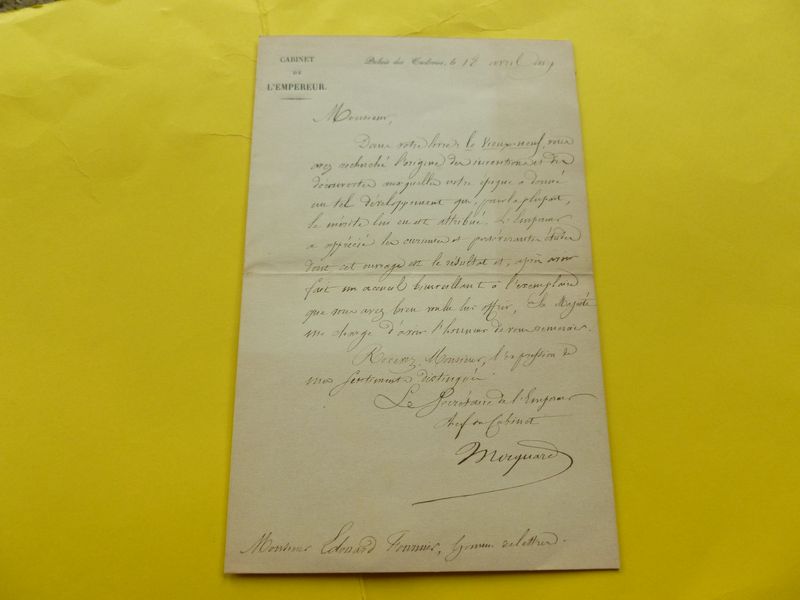 CABINET
DE
L'EMPEREUR.
Palais des Tuileries, le 12 avril
Monsieur,
Dans votre livre: le Vieux-neuf, vous
avez recherché l'origine des inventions et des
découvertes auxquelles notre époque a donné
un tel développement que, pour la plupart,
le mérite lui en est attribué. L'Empereur
a apprécié les curieuses et persévérantes études
dont cet ouvrage est le résultat et, après avoir
fait un accueil bienveillant à l'exemplaire
que vous avez bien voulu lui offrir, Sa Majesté
me charge d'avoir l'honneur de vous remercier.
Recevez, Monsieur, l'expression de
mes sentiments distingués.
Le Secrétaire de l'Empereur
chef du Cabinet
Mocquard
Monsieur Edouard Fournier, homme de lettres.